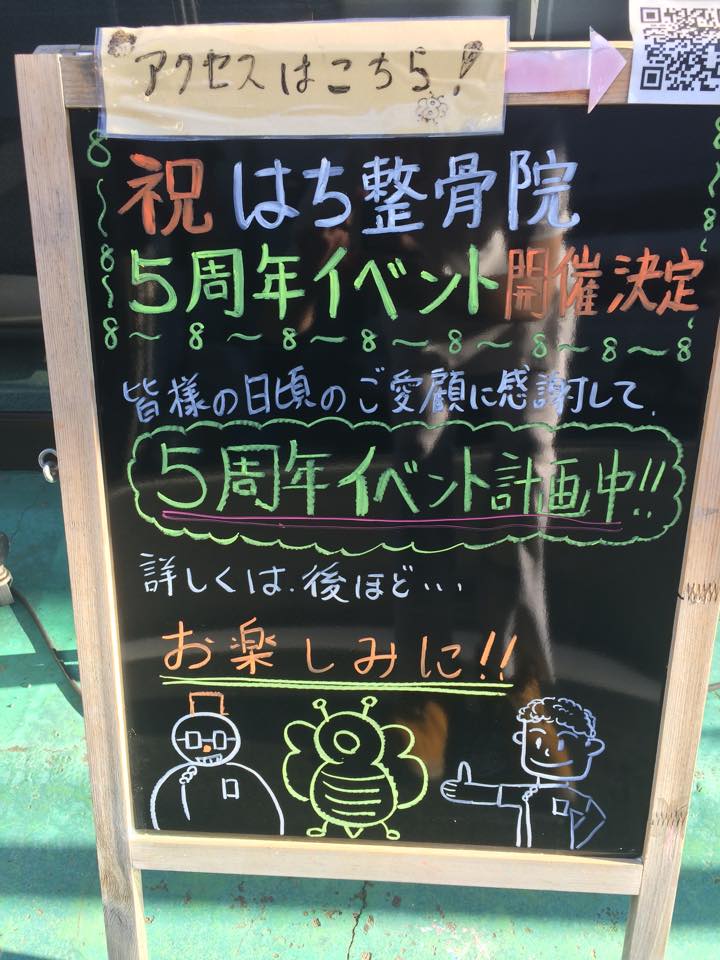 アクセスはこちら!
祝 はち整骨院
5周年イベント開催決定
8〜8〜8〜8〜8〜8〜8〜8
皆様の日頃のご愛顧に感謝して、
5周年イベント計画中!!
詳しくは、後ほど…
お楽しみに!!